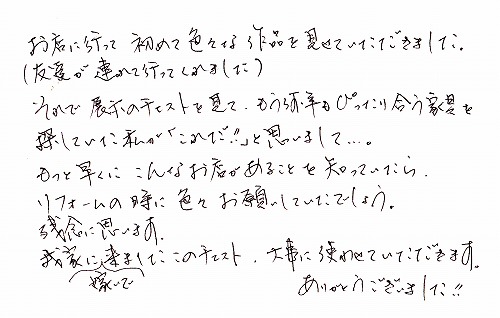 お店に行って 初めて色々な作品を見せていただきました。
(友達が連れて行ってくれました)
それで展示のチェストを見て、もう何年もぴったり合う家具を
探していた私が「これだ!!」と思いまして…。
もっと早くに こんなお店があることを知っていたら、
リフォームの時に色々お願いしていたでしょう。
残念に思います。
我家に来ましたこのチェスト、大事に使わせていただきます。
嫁いで
ありがとうございました!!